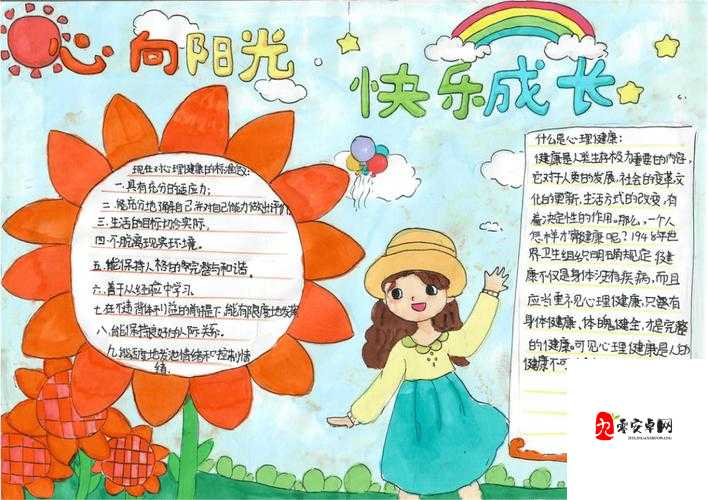 心向阳光
快乐成长
现在对心理健康的标准
一.具有充分的适应力;
二.能充分地了解自己并对自己能力做出评价
三.生活的目标切合实际.
四.不脱离现实环境.
五.能保持人格的完整与和谐.
六.善于从经验中学习.
七.在不违背集体利益的前提下,能有限度地发挥
八.能保持良好的人际关系.
九.能适度地发泄情绪和控制情
绪.
什么是心理健康:
健康是人类生存极为重要的内容,
它对于人类的发展,社会的变革文
化的更新,生活方式的改变,有
着决定性的作用。那么,一个人
怎样才算健康呢?1948年世
界卫生组织明确规定:健
康不仅是身体没有疾病,而且
应当重视心理健康,只有
身体健康,体魄健全,才是完整
的健康。可见心理健康是人的
健康不可
零安卓网